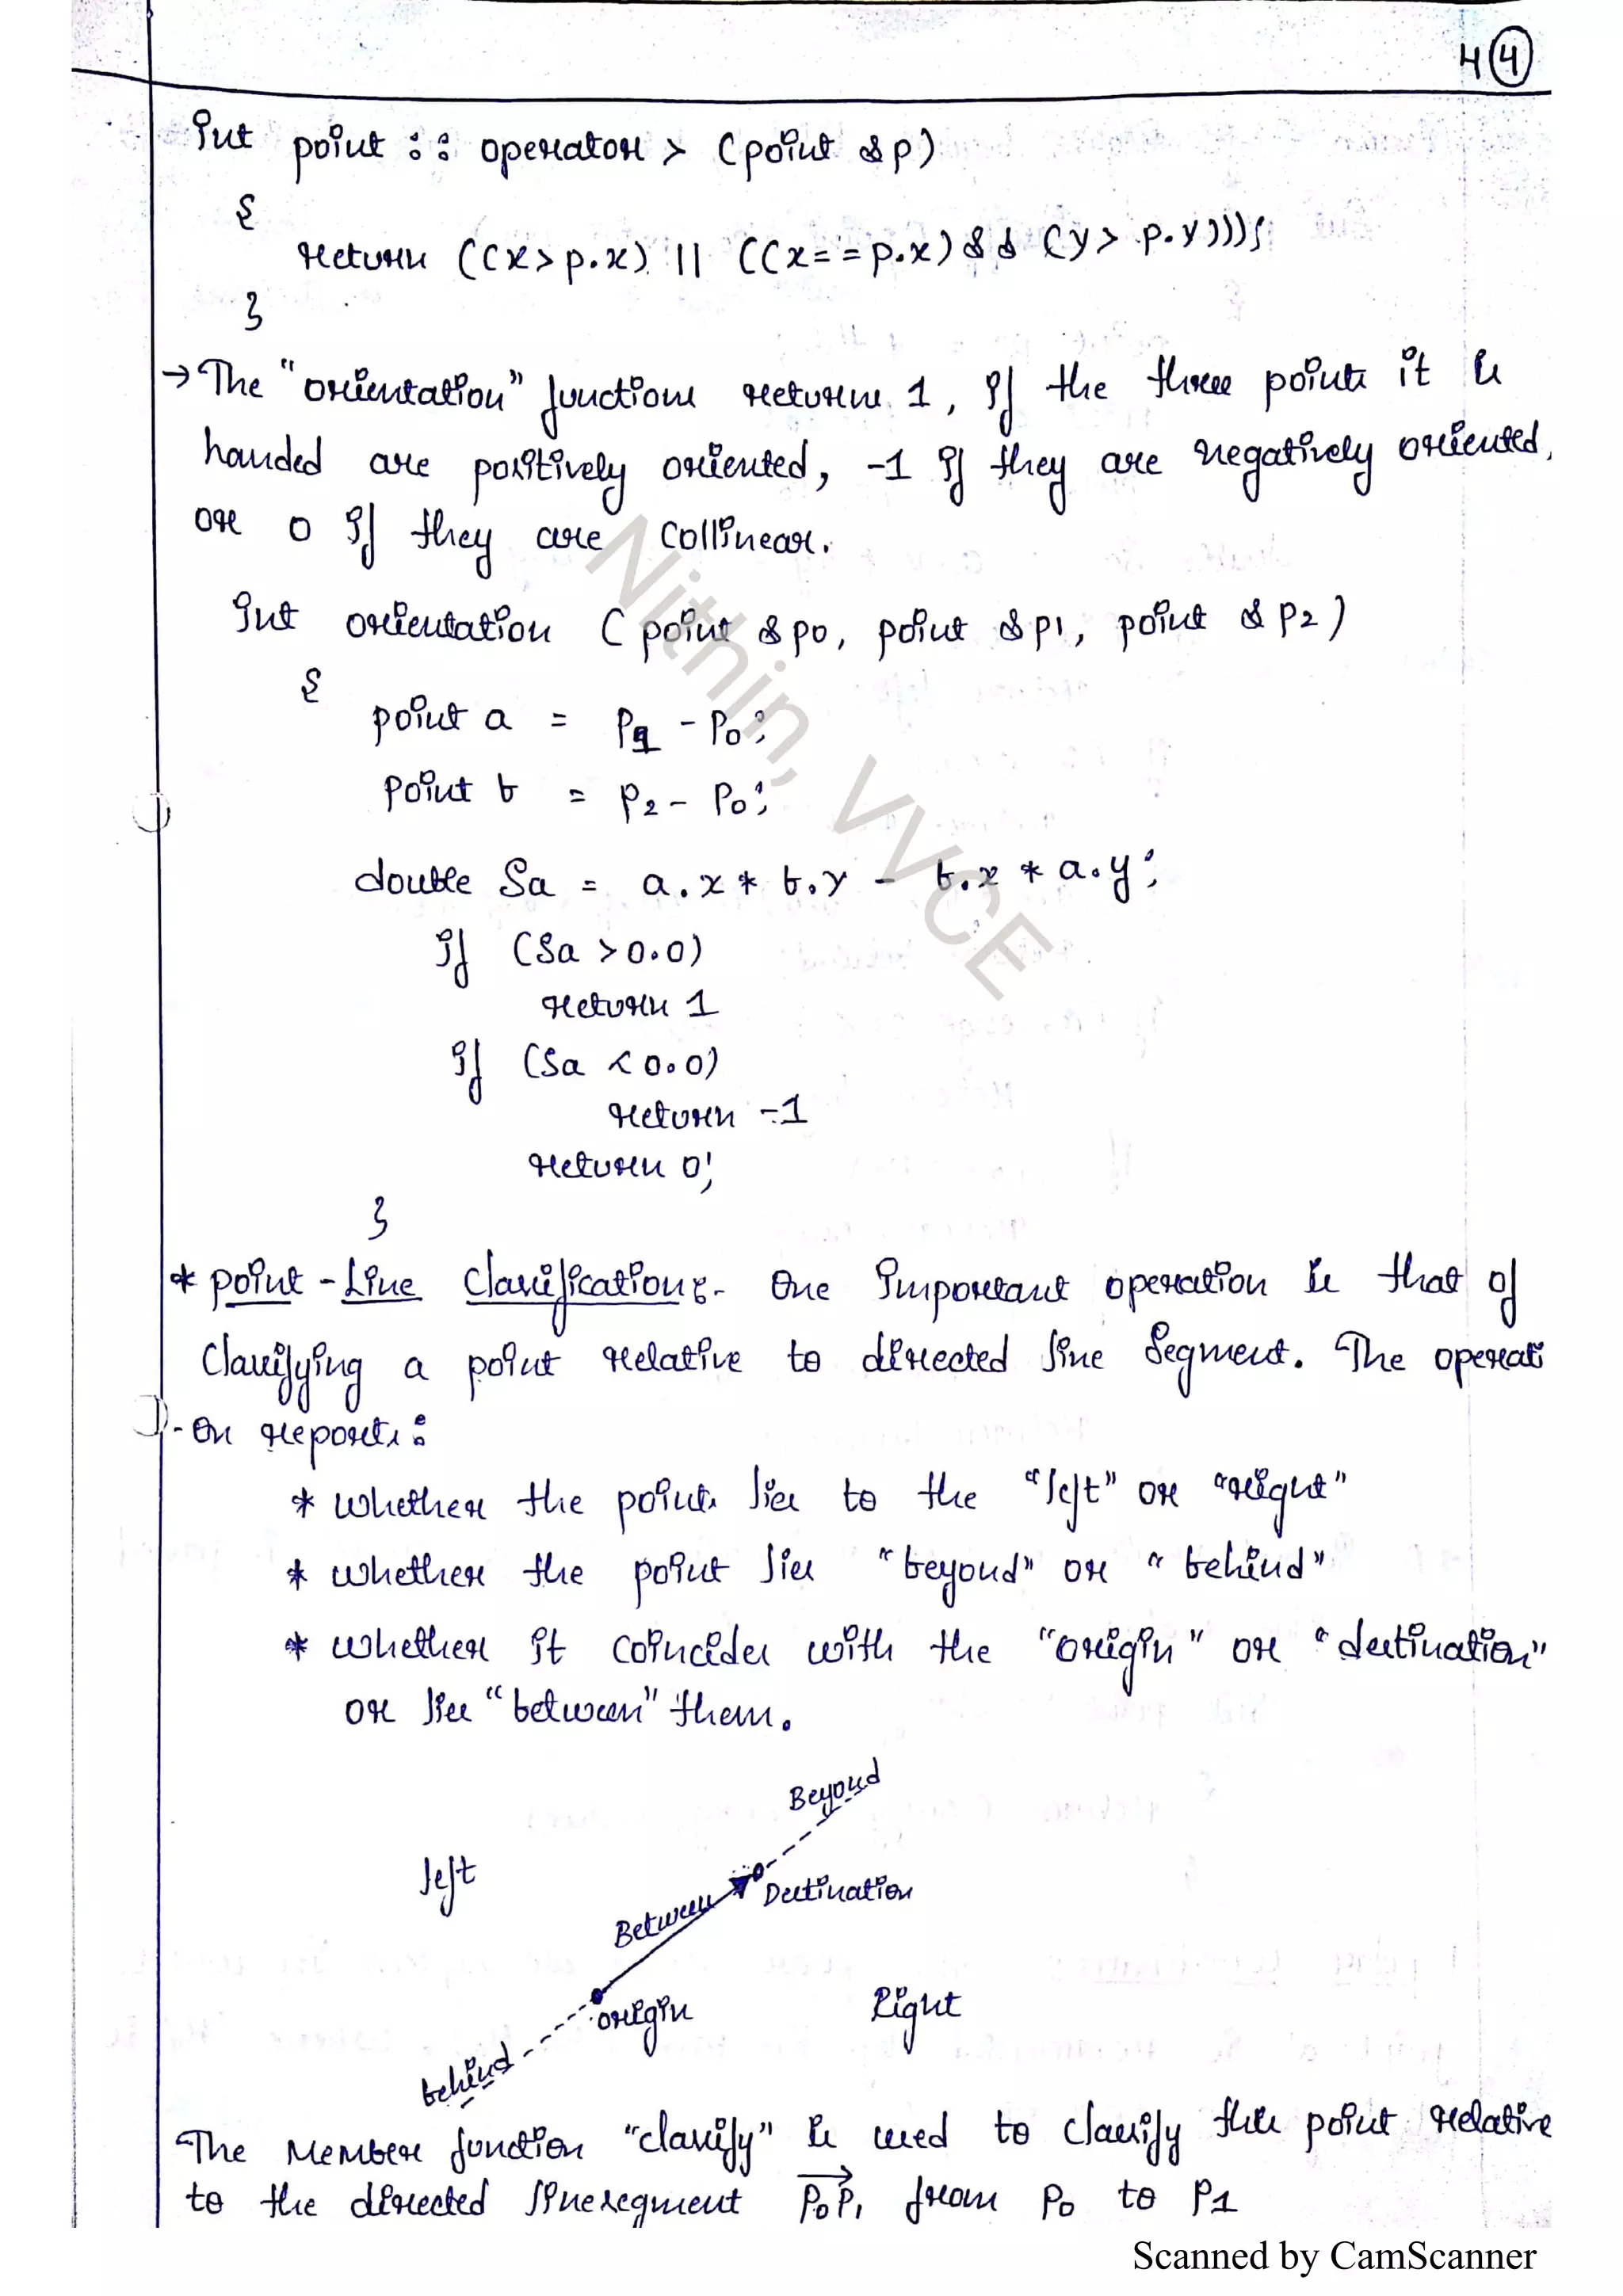 4 4
int point :: operator > (point &p)
{
return ((x>p.x) || ((x==p.x) && (y> p.y)));
}
→ The "orientation" functions returns 1, if the three points it is
handed are positively oriented, -1 if they are negatively oriented,
or 0 if they are collinear.
int orientation (point &p0, point &p1, point &p2)
{
point a = P1 - P0;
point b = P2 - P0;
double Sa = a.x * b.y - b.x * a.y;
if (Sa > 0.0)
return 1
if (Sa < 0.0)
return -1
return 0;
}
* point - Line Classification:- One important operation is that of
Classifying a point relative to directed line segment. The operati
-on reports:
* whether the points lies to the "left" or "right"
* whether the point lies "beyond" or "behind"
* whether it coincides with the "origin" or "destination"
or lies "between" them.
Beyond
left
Destination
Between
origin
Right
behind
The Member function "classify" is used to classify this point relative
to the directed linesegment P0P1 from P0 to P1
Nithin, VVCE
Scanned by CamScanner